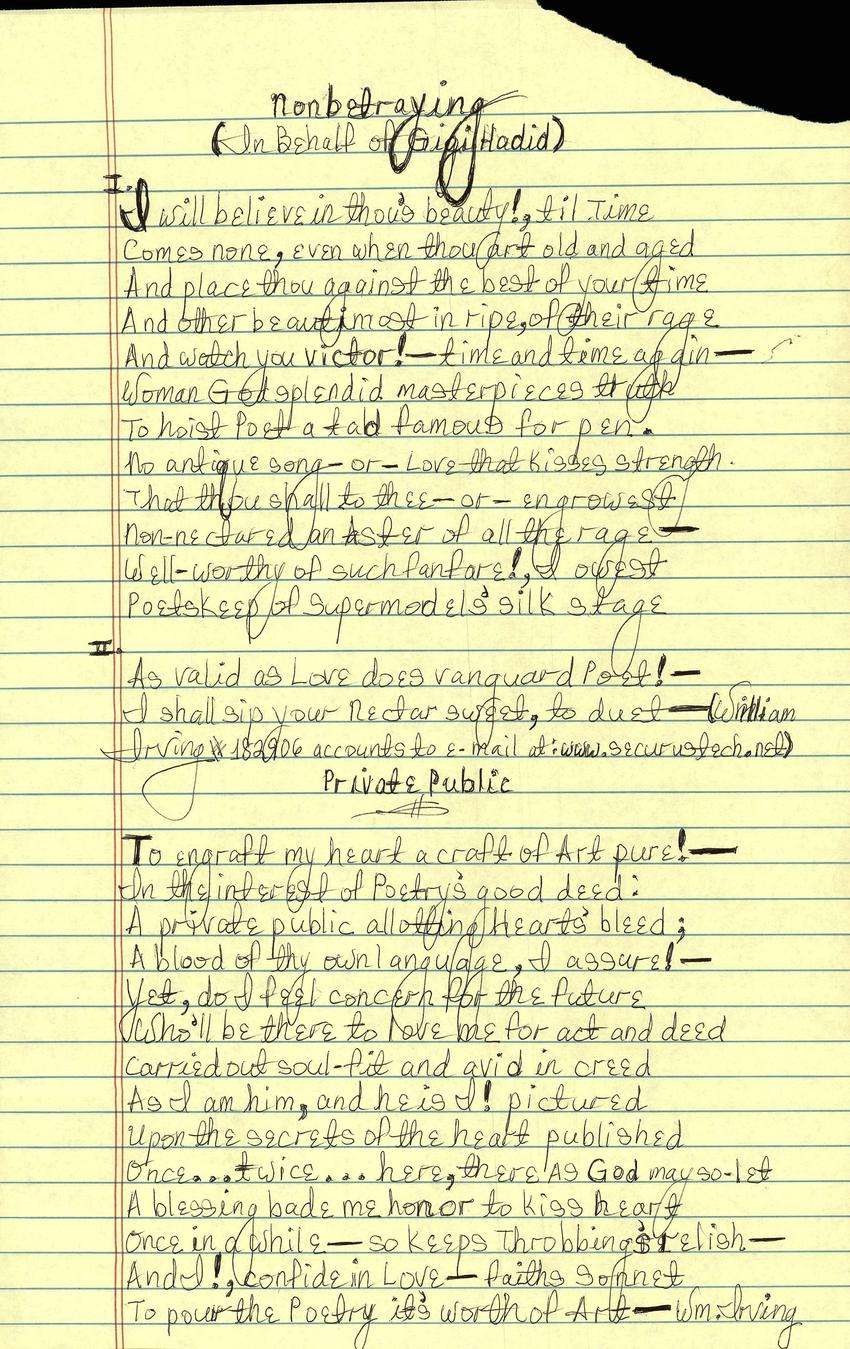 Nonbetraying
(In Behalf of Gigi Hadid)
I.
I will believe in thou's beauty!, til Time
Comes none, even when thou art old and aged
And place thou against the best of your time
And other beautimost in ripe, of their rage
And watch you victor!— time and time again—
Woman God splendid masterpieces truth
To hoist Poet a tad famous for pen.
No antique song- or- Love that kisses strength.
That thou shall to thee- or- engrowest
Non-nectared an Aster of all the rage—
Well-worthy of such fanfare!, I owest
Poetskeep of supermodels' silk stage
II.
As valid as Love does vanguard Poet!—
I shall sip your Nectar sweet, to dust—(William
Irving # 182906 accounts to e-mail at: www.securustech.net)
Private Public
To engraft my heart a craft of Art pure!—
In the interest of Poetry's good deed:
A private public allotting Hearts' bleed;
A blood of thy own language, I assure!—
Yet, do I feel concern for the future
Who'll be there to love me for act and deed
Carried out soul-fit and avid in creed
As I am him, and he is I! pictured
Upon the secrets of the heart published
Once...twice... here, there As God may so-let
A blessing bade me honor to kiss heart
Once in a while— so keeps Throbbing's relish—
And I!, confide in Love— faiths sonnet
To pour the Poetry it's worth of Art— Wm. Irving